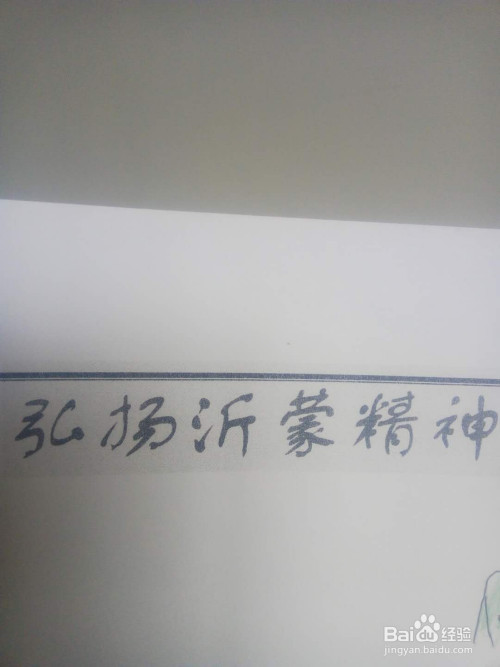 弘扬沂蒙精神
Baidu经验
jingyan.baidu.com